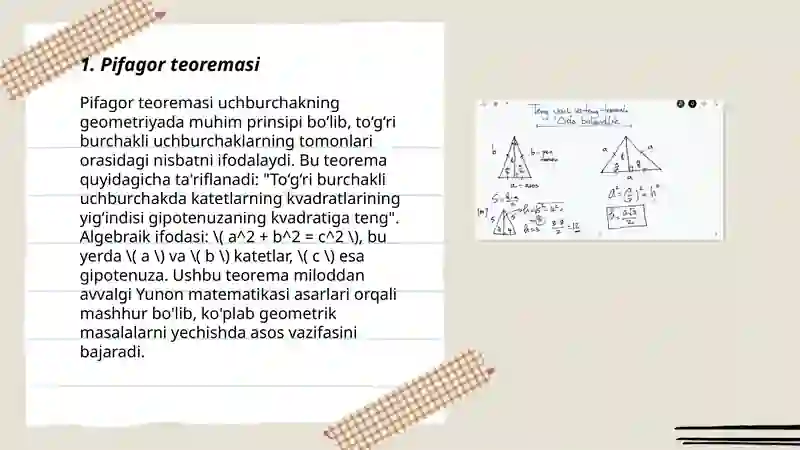 1. Pifagor teoremasi
Pifagor teoremasi uchburchakning
geometriyada muhim prinsipi bo‘lib, to‘g‘ri
burchakli uchburchaklarning tomonlari
orasidagi nisbatni ifodalaydi. Bu teorema
quyidagicha ta'riflanadi: "To‘g‘ri burchakli
uchburchakda katetlarning kvadratlarining
yig‘indisi gipotenuzaning kvadratiga teng".
Algebraik ifodasi: \( a^2 + b^2 = c^2 \), bu
yerda \( a \) va \( b \) katetlar, \( c \) esa
gipotenuza. Ushbu teorema miloddan
avvalgi Yunon matematikasi asarlari orqali
mashhur bo'lib, ko'plab geometrik
masalalarni yechishda asos vazifasini
bajaradi.
Teng yonli va teng tomonli
b
a
a
a = asos
a